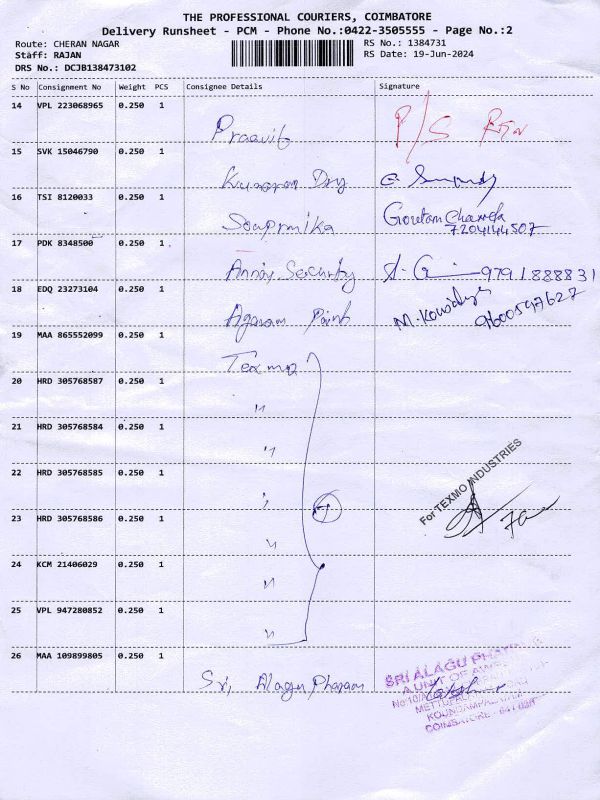 THE PROFESSIONAL COURIERS, COIMBATORE
Delivery Runsheet - PCM - Phone No.:0422-3505555 - Page No.:2
Route: CHERAN NAGAR
RS No.: 1384731
Staff: RAJAN
RS Date: 19-Jun-2024
DRS No.: DCJB138473102
S No Consignment No Weight PCS Consignee Details Signature
14 VPL 223068965 0.250 1
P/S
15 SVK 15046790 0.250 1
16 TSI 8120033 0.250 1
Goutam Chawda
7204144507
17 PDK 8348500 0.250 1
Annai Security 9791888831
18 EDQ 23273104 0.250 1
Agaram Paint
9600597627
19 MAA 865552099 0.250 1
Texmo
20 HRD 305768587 0.250 1
"
21 HRD 305768584 0.250 1
"
22 HRD 305768585 0.250 1
"
For TEXMO INDUSTRIES
23 HRD 305768586 0.250 1
"
24 KCM 21406029 0.250 1
"
25 VPL 947280852 0.250 1
"
26 MAA 109899805 0.250 1
Sri, Alagu Pharam
SRI ALAGU PHARAM
A UNIT OF
KOUNDAMPALAYAM
COIMBATORE